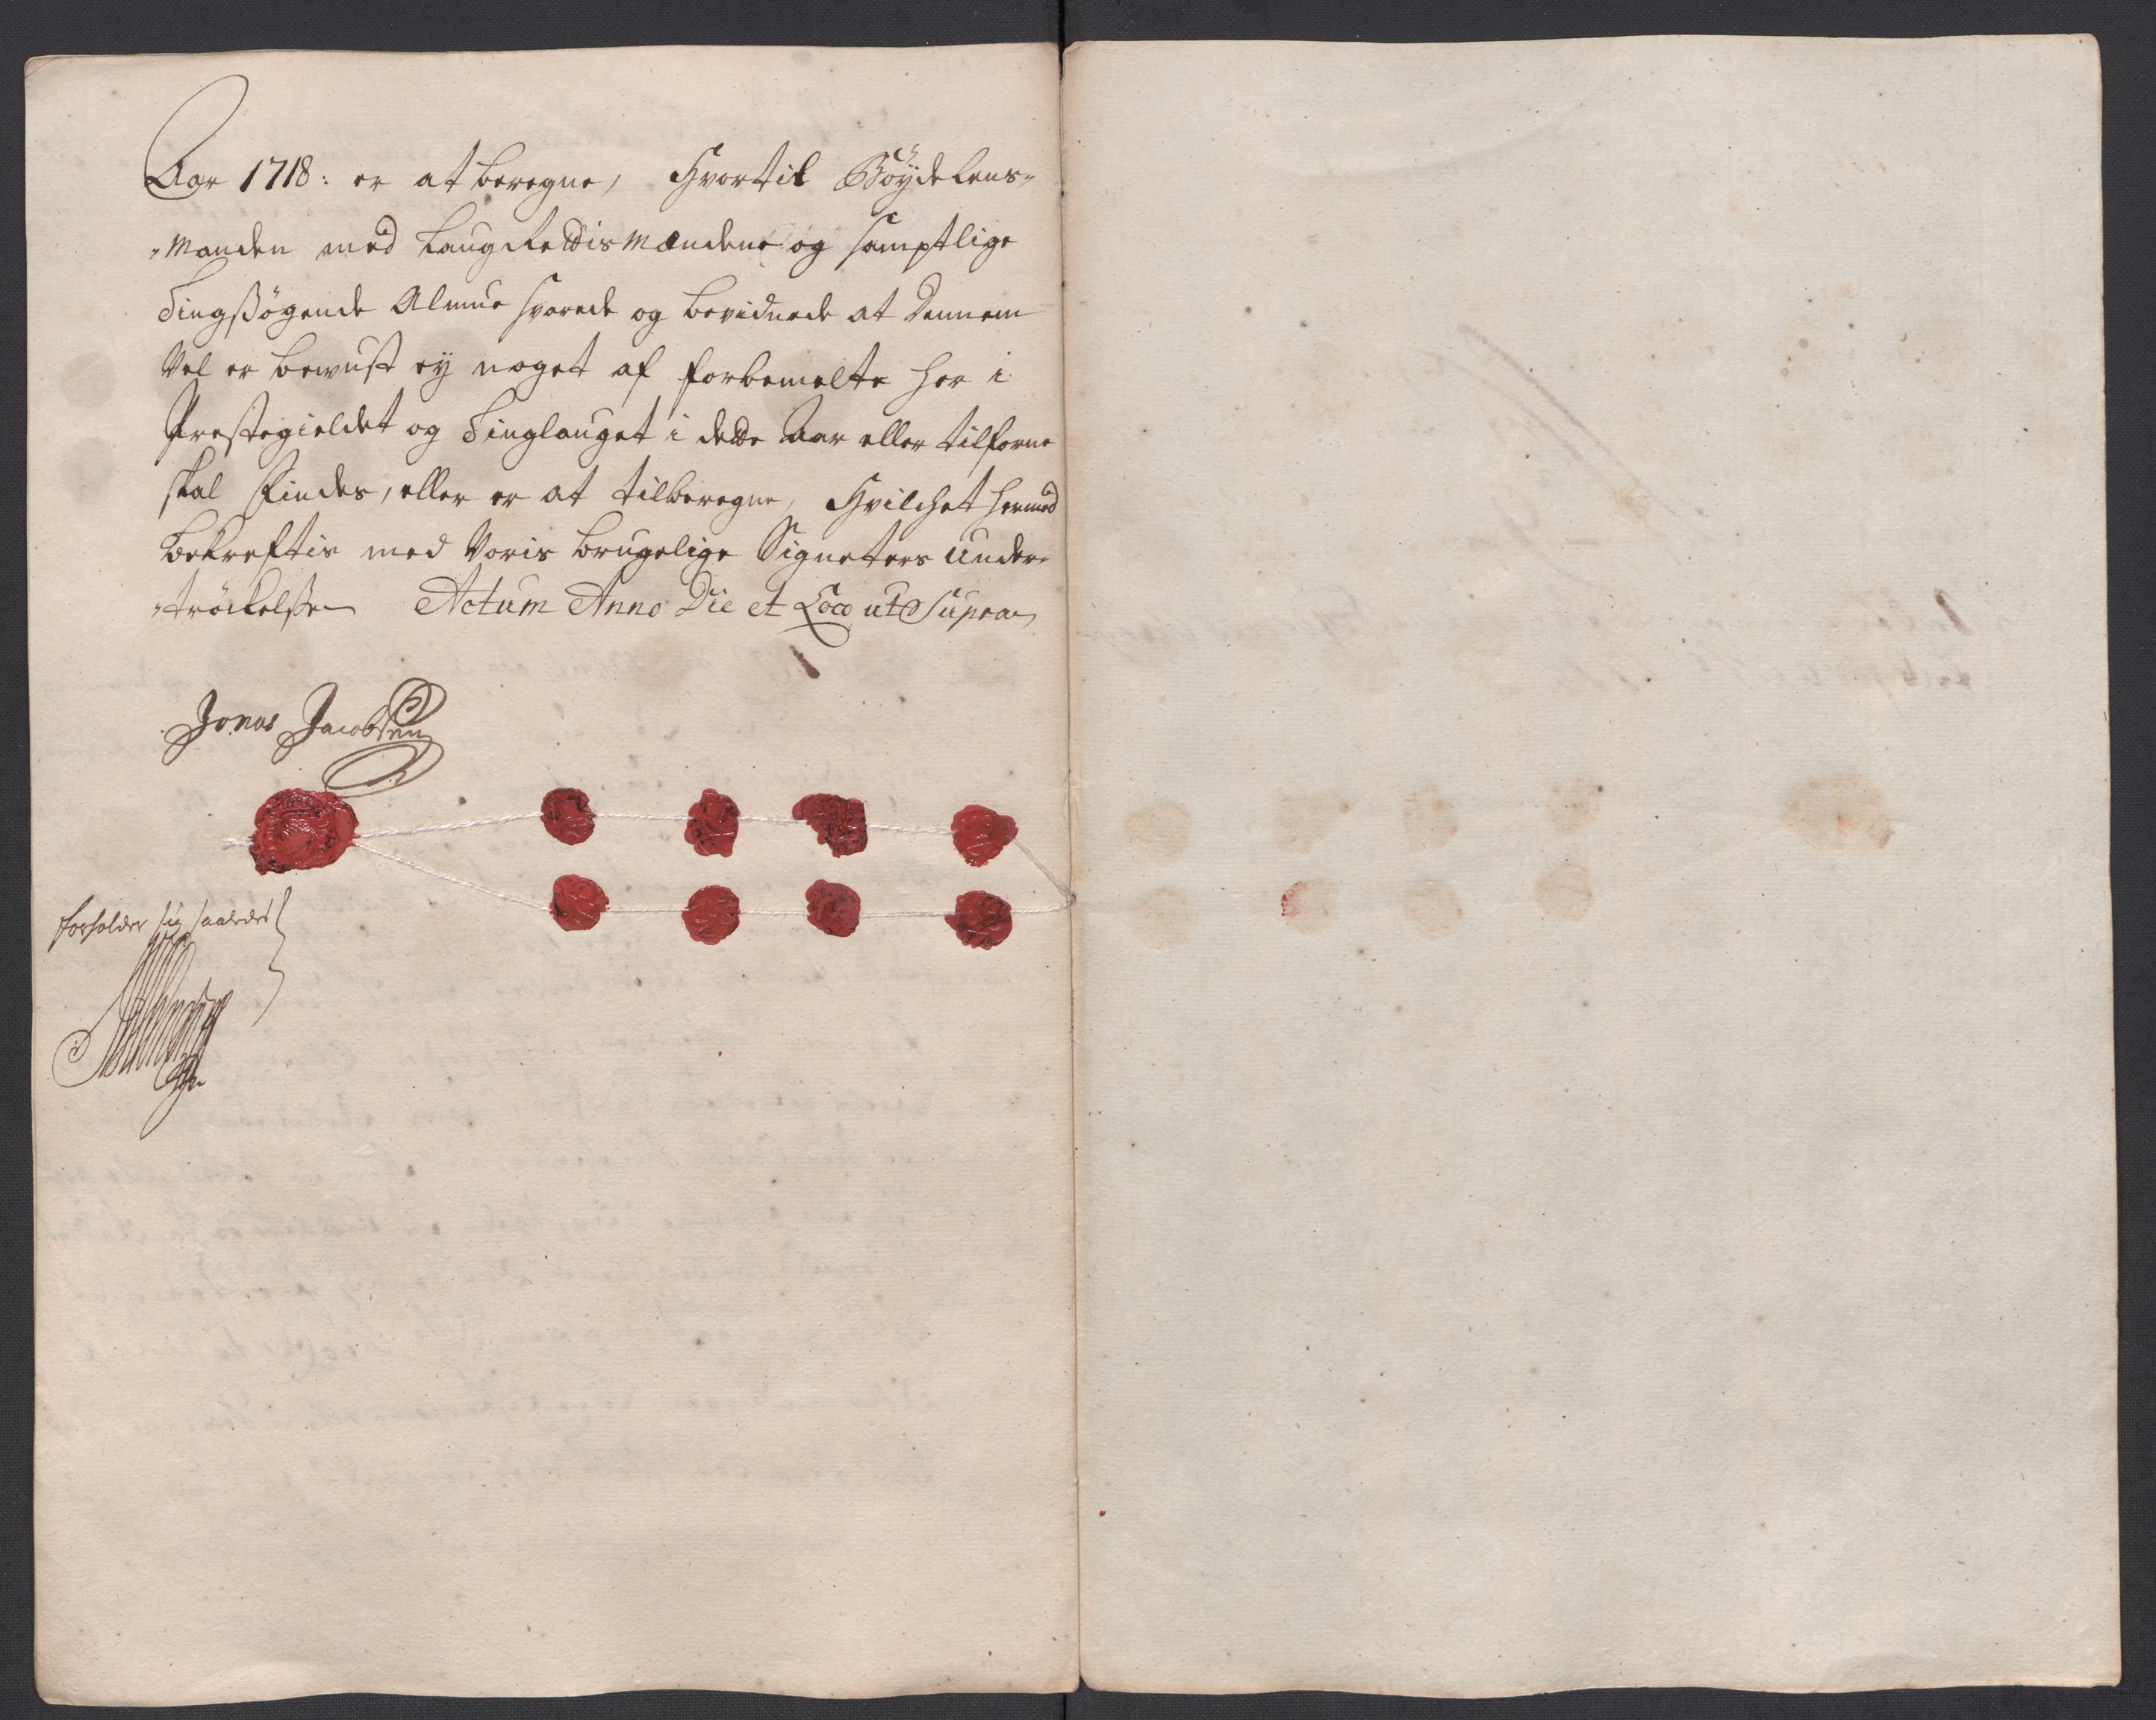 Aar 1718: er at beregne, Hvortil Böydelens-
-manden med LaugRettismændene og samptlige
Tingsögende Almue svarede og bevidnede at dennem
Vel er bewust ey noget af forbemelte her i
Præstegieldet og Tinglauget i dette Aar eller tilforne
skal Findes, eller er at tilberegne, Hvilchet hermed
Bekreftis med Voris brugelige Signeters under-
-tröckelsse Actum Anno Die et Loco ut Supra
Jonas Jacobsen
forholder sig saaledes